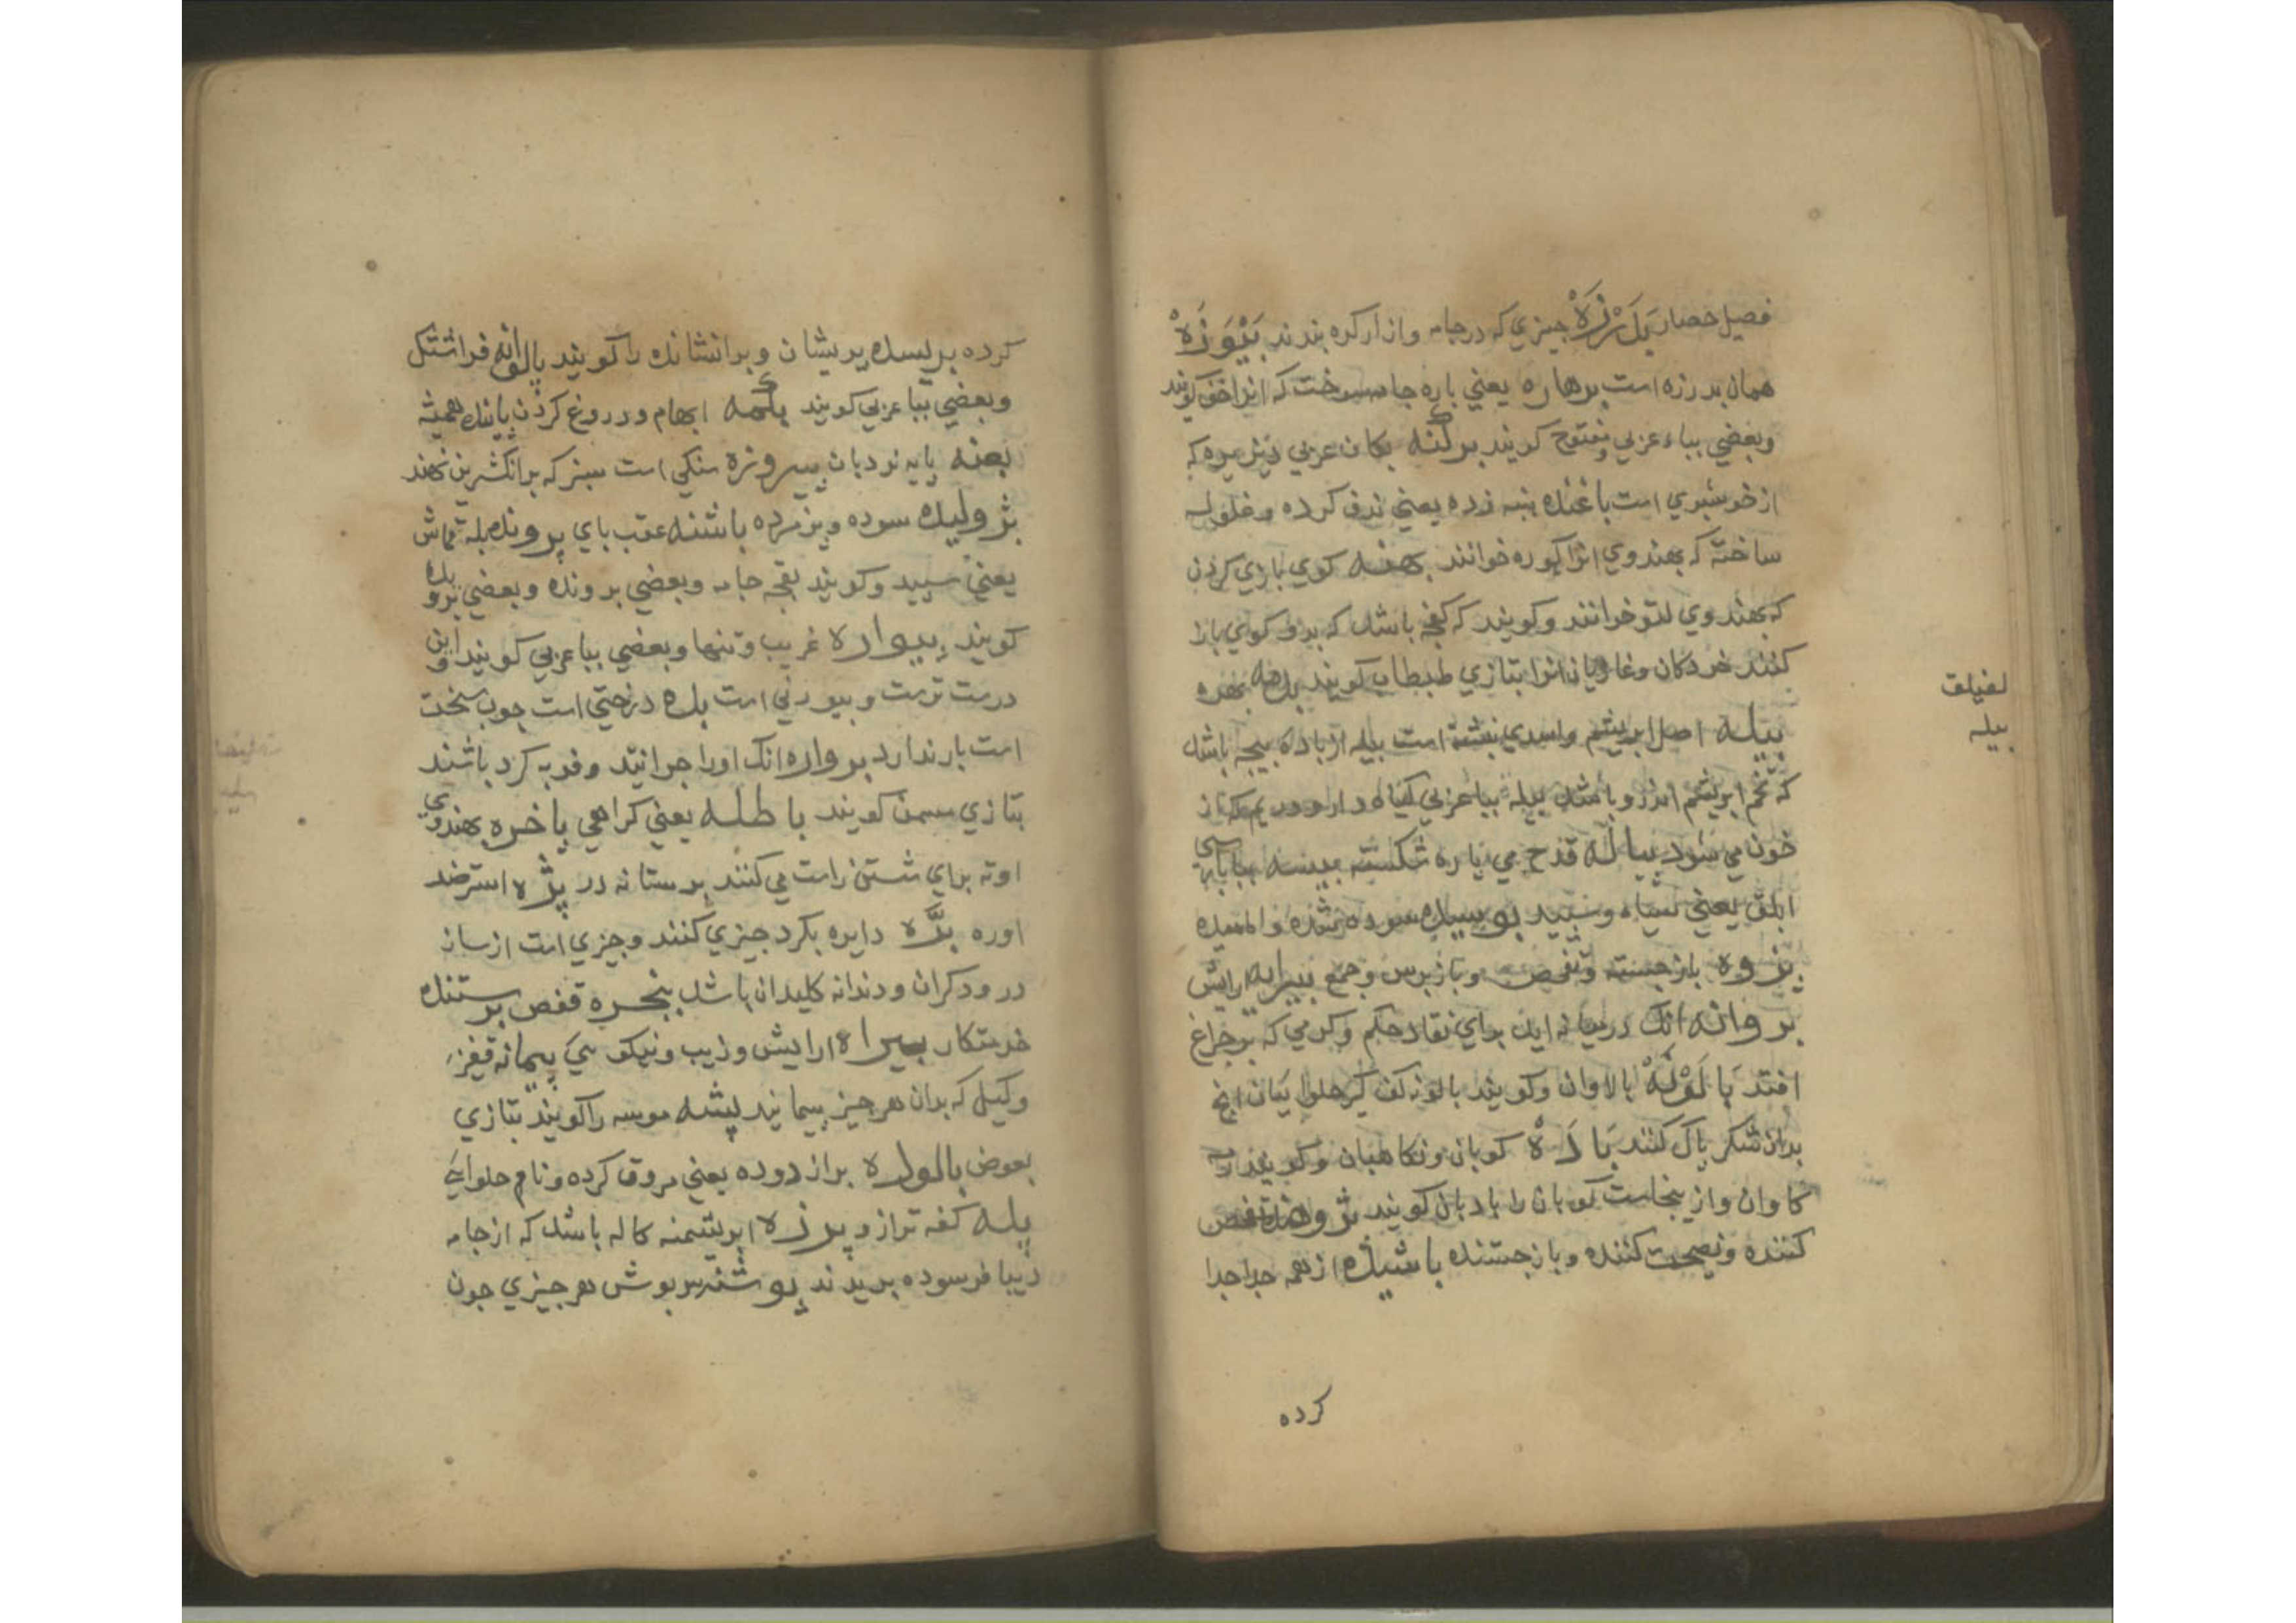 فصیل حصار بَدَرْزَهْ جیزي که در جامه وازار کره بندند بَتْوَزَهْ
همان بدرزه است برهاره یعني باره جامه سوخت که انرا خف کویند
وبعضي بباء عربي مفتوح کویند برکنه بکاف عربي نیز میوه که
از خوشبوي است باغنده بنبه زده یعني ندف کرده وغلوله
ساخته که بهندوي انرا کوره خوانند بهنه کوي بازي کردن
که بهندوي لتو خوانند وکویند که کفجه باشد که بدو کوي بازا
کنند خردکان وغازیان انرا بتازي طبطاب کویند بدهه بهره
بیله اصل ابریشم واسدي نبشته است بیله از باده بیجه باشد
که تخم ابریشم اندرو باشد بیله ببا عربي کیاه دارو وریم که از
خون مي شود بیاله قدح مي پاره شکسته بیسه ببا بارسي
ابلق یعني سیاه وسبید بوسیده سوده شده والمیده
بزوه بازجسته وتفحص وبازبرس وجمع بیرایه ارایش
بروانه انک درمیانه اید براي نفاد حکم وکرمي که بر جراغ
افتد بَالَوْنَهْ بالاوان وکویند بالونه کف کیر حلوا بیان انج
بدان شکر پاک کنند بَادَهْ کوبان ونکاهبان وکویند
کاوان وازینجاست کوبان را بادبان کویند بژوهنده تفحص
کننده ونصیحت کننده وبازجستنده باشیده از همه جدا جدا
کرده
لفیلق
بیله
کرده بریسده پریشان وبرانشانده را کویند پالوانه فراشتک
وبعضي ببا عربي کویند بلکمه ابهام ودروغ کردن پاینده همیشه
بعنه پایه نردبان بیروزه سنکي است سبز که برانکشترین نهند
بژولیده سوده وپژمرده باشنه عقب باي پرونده بله قماش
یعني سبید وکویند بقجه جامه وبعضي برونده وبعضي بروبده
کویند بیواره غریب وتنها وبعضي ببا عربي کویند واین
درست ترست وبیورني است بده درختي است جوب سخت
است بار ندارد برواره انک اورا جرانند وفربه کرد باشند
بتازي مسمن کویند باطله یعني کراهي باخره بهندوي
اوته براي شستن راست مي کنند برستانه در پژه استرضد
اوره بَرَّه دایره بکرد جیزي کنند وجیزي است از ساز
درودکران ودندانه کلیدان باشد بنجره قفص برستنده
خدمتکار بیراه ارایش وزیب ونیکو یي پیمانه قفیز
وکیل که بدان هر جیز بیمایند پیشه موسه را کویند بتازي
بعوض بالوده براز دوده یعني مروق کرده ونام حلوایي
پله کفه ترازو پرزه ابریشمنه کاله باشد که از جامه
دیبا فرسوده بریدند پوشنه سربوش هر جیزي جون